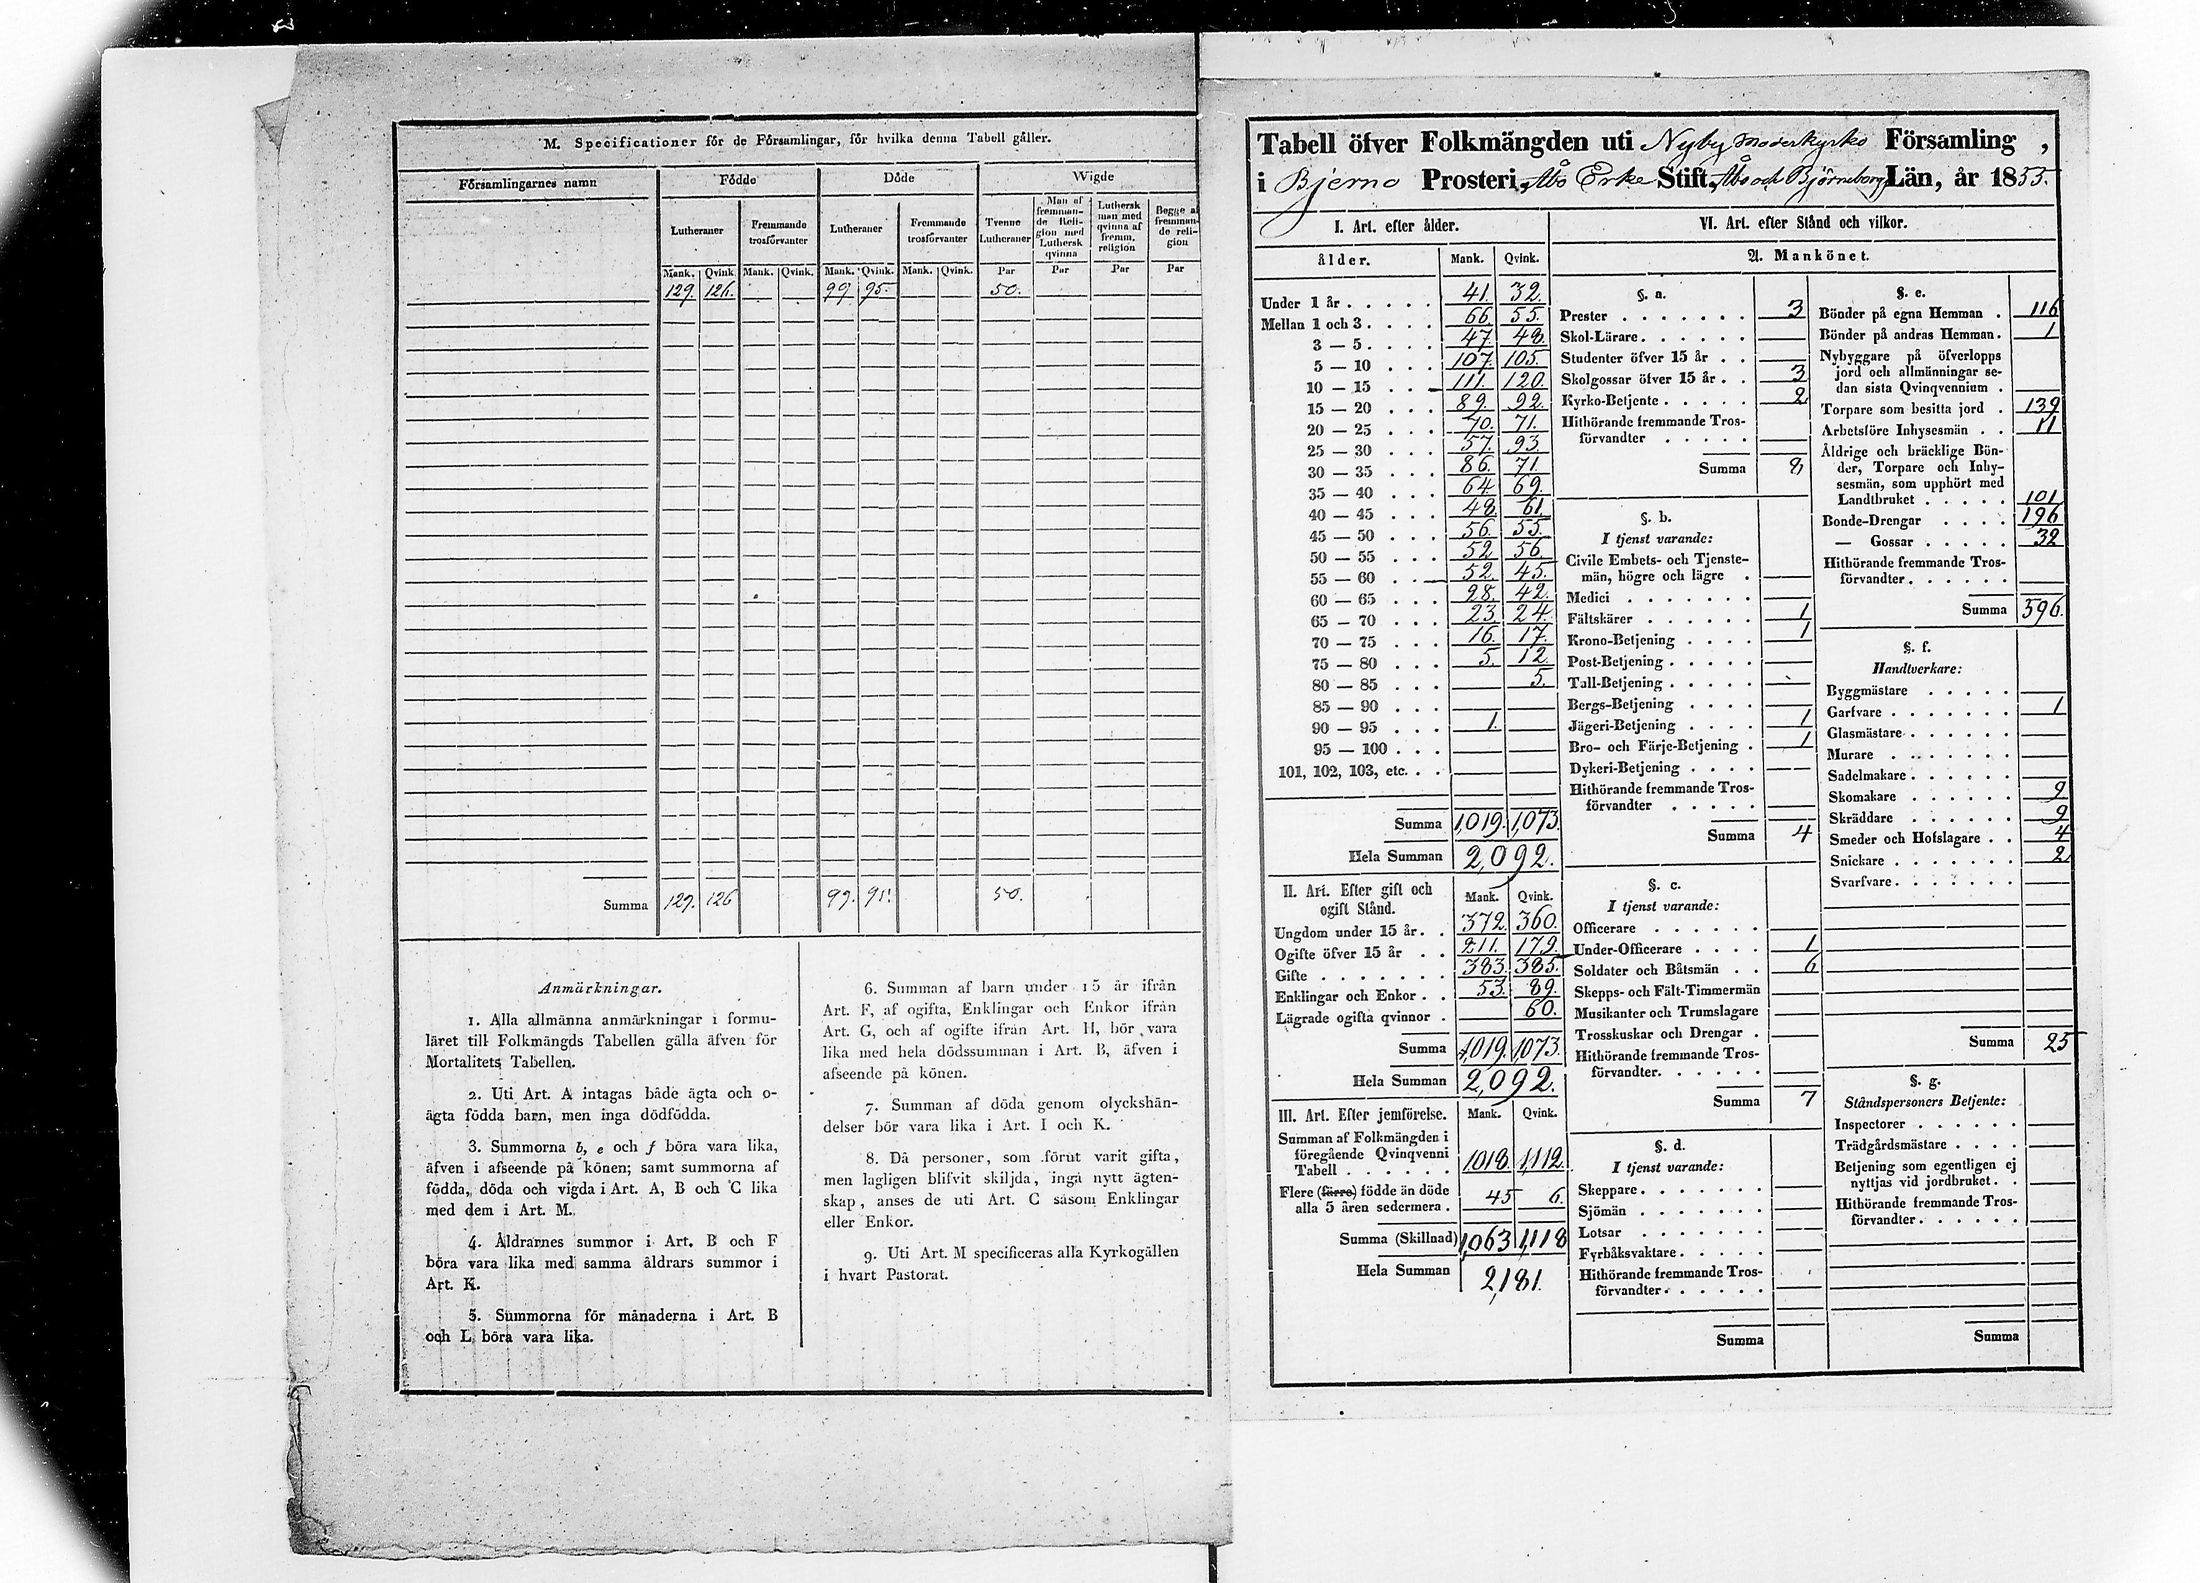 M. Specificationer för de Församlingar, för hvilka denna Tabell gäller.
Församlingarnes namn Födde Döde Wigde
Lutheraner Fremmande trosförvanter Lutheraner Fremmande trosförvanter Tvenne Lutheraner Man af fremmande Religion med Luthersk qvinna Luthersk man med qvinna af fremm. religion Begge af fremmande religion
Mank. Qvink. Mank. Qvink. Mank. Qvink. Mank. Qvink. Par Par Par Par
129. 126. 99. 95. 50.
Summa 129. 126 99. 95. 50.
Anmärkningar.
1. Alla allmänna anmärkningar i formu-
läret till Folkmängds Tabellen gälla äfven för
Mortalitets Tabellen.
2. Uti Art. A intagas både ägta och o-
ägta födda barn, men inga dödfödda.
3. Summorna b, e och f böra vara lika,
äfven i afseende på könen; samt summorna af
födda, döda och vigda i Art. A, B och C lika
med dem i Art. M.
4. Åldrarnes summor i Art. B och F
böra vara lika med samma åldrars summor i
Art. K.
5. Summorna för månaderna i Art. B
och L böra vara lika.
6. Summan af barn under 15 år ifrån
Art. F, af ogifta, Enklingar och Enkor ifrån
Art. G, och af ogifte ifrån Art. H, bör vara
lika med hela dödssumman i Art. B, äfven i
afseende på könen.
7. Summan af döda genom olyckshän-
delser bör vara lika i Art. I och K.
8. Då personer, som förut varit gifta,
men lagligen blifvit skiljda, ingå nytt ägten-
skap, anses de uti Art. C såsom Enklingar
eller Enkor.
9. Uti Art. M specificeras alla Kyrkogällen
i hvart Pastorat.
Tabell öfver Folkmängden uti Nyby Moderkyrko Församling,
i Bjerno Prosteri, Åbo Erke Stift, Åbo och Björneborgs Län, år 1855.
I. Art. efter ålder.
ålder. Mank. Qvink.
Under 1 år 41. 32.
Mellan 1 och 3 66. 55.
3 — 5 47. 48.
5 — 10 107. 105.
10 — 15 111. 120.
15 — 20 89. 92.
20 — 25 70. 71.
25 — 30 57. 93.
30 — 35 86. 71.
35 — 40 64. 69.
40 — 45 48. 61.
45 — 50 56. 55.
50 — 55 52 56.
55 — 60 52. 45.
60 — 65 28. 42.
65 — 70 23. 24.
70 — 75 16. 17.
75 — 80 5. 12.
80 — 85 5.
85 — 90
90 — 95 1.
95 — 100
101, 102, 103, etc.
Summa 1,019. 1,073.
Hela Summan 2,092.
II. Art. Efter gift och ogift Stånd. Mank. Qvink.
Ungdom under 15 år 372. 360.
Ogifte öfver 15 år 211. 179.
Gifte 383. 385.
Enklingar och Enkor 53. 89.
Lägrade ogifta qvinnor 60.
Summa 1,019. 1073.
Hela Summan 2,092.
III. Art. Efter jemförelse. Mank. Qvink.
Summan af Folkmängden i
föregående Qvinqvenni
Tabell 1018. 1,112.
Flere (färre) födde än döde
alla 5 åren sedermera 45 6.
Summa (Skillnad) 1,063 1,118
Hela Summan 2,181.
VI. Art. efter Stånd och vilkor.
A. Mankönet.
§. a.
Prester 3
Skol-Lärare
Studenter öfver 15 år
Skolgossar öfver 15 år 3
Kyrko-Betjente 2
Hithörande fremmande Tros-
förvandter
Summa 8
§. b.
I tjenst varande:
Civile Embets- och Tjenste-
män, högre och lägre
Medici
Fältskärer 1
Krono-Betjening 1
Post-Betjening
Tull-Betjening
Bergs-Betjening
Jägeri-Betjening 1
Bro- och Färje-Betjening 1
Dykeri-Betjening
Hithörande fremmande Tros-
förvandter
Summa 4
§. c.
I tjenst varande:
Officerare
Under-Officerare 1
Soldater och Båtsmän 6
Skepps- och Fält-Timmermän
Musikanter och Trumslagare
Trosskuskar och Drengar
Hithörande fremmande Tros-
förvandter
Summa 7
§. d.
I tjenst varande:
Skeppare
Sjömän
Lotsar
Fyrbåksvaktare
Hithörande fremmande Tros-
förvandter
Summa
§. e.
Bönder på egna Hemman 116
Bönder på andras Hemman 1
Nybyggare på öfverlopps
jord och allmänningar se-
dan sista Qvinqvennium
Torpare som besitta jord 139
Arbetsföre Inhysesmän 11
Åldrige och bräcklige Bön-
der, Torpare och Inhy-
sesmän, som upphört med
Landtbruket 101
Bonde-Drengar 196
— Gossar 32
Hithörande fremmande Tros-
förvandter
Summa 596.
§. f.
Handtverkare:
Byggmästare
Garfvare 1
Glasmästare
Murare
Sadelmakare
Skomakare 9
Skräddare 9
Smeder och Hofslagare 4
Snickare 2
Svarfvare
Summa 25
§. g.
Ståndspersoners Betjente:
Inspectorer
Trädgårdsmästare
Betjening som egentligen ej
nyttjas vid jordbruket
Hithörande fremmande Tros-
förvandter
Summa